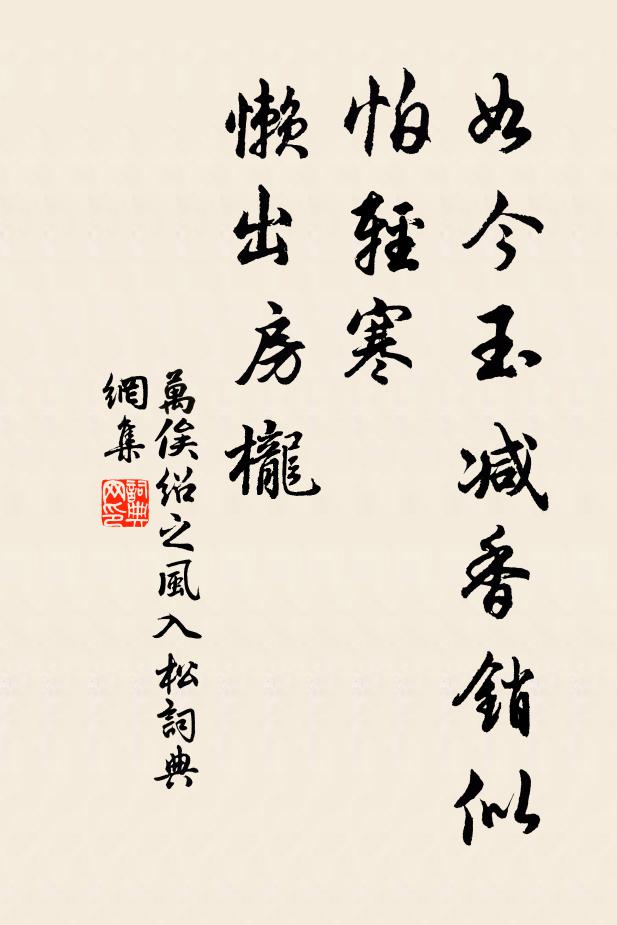 如今玉减香銷似
怕輕寒
懶出房櫳
萬俟紹之風入松詞典
網集
詞典
网印